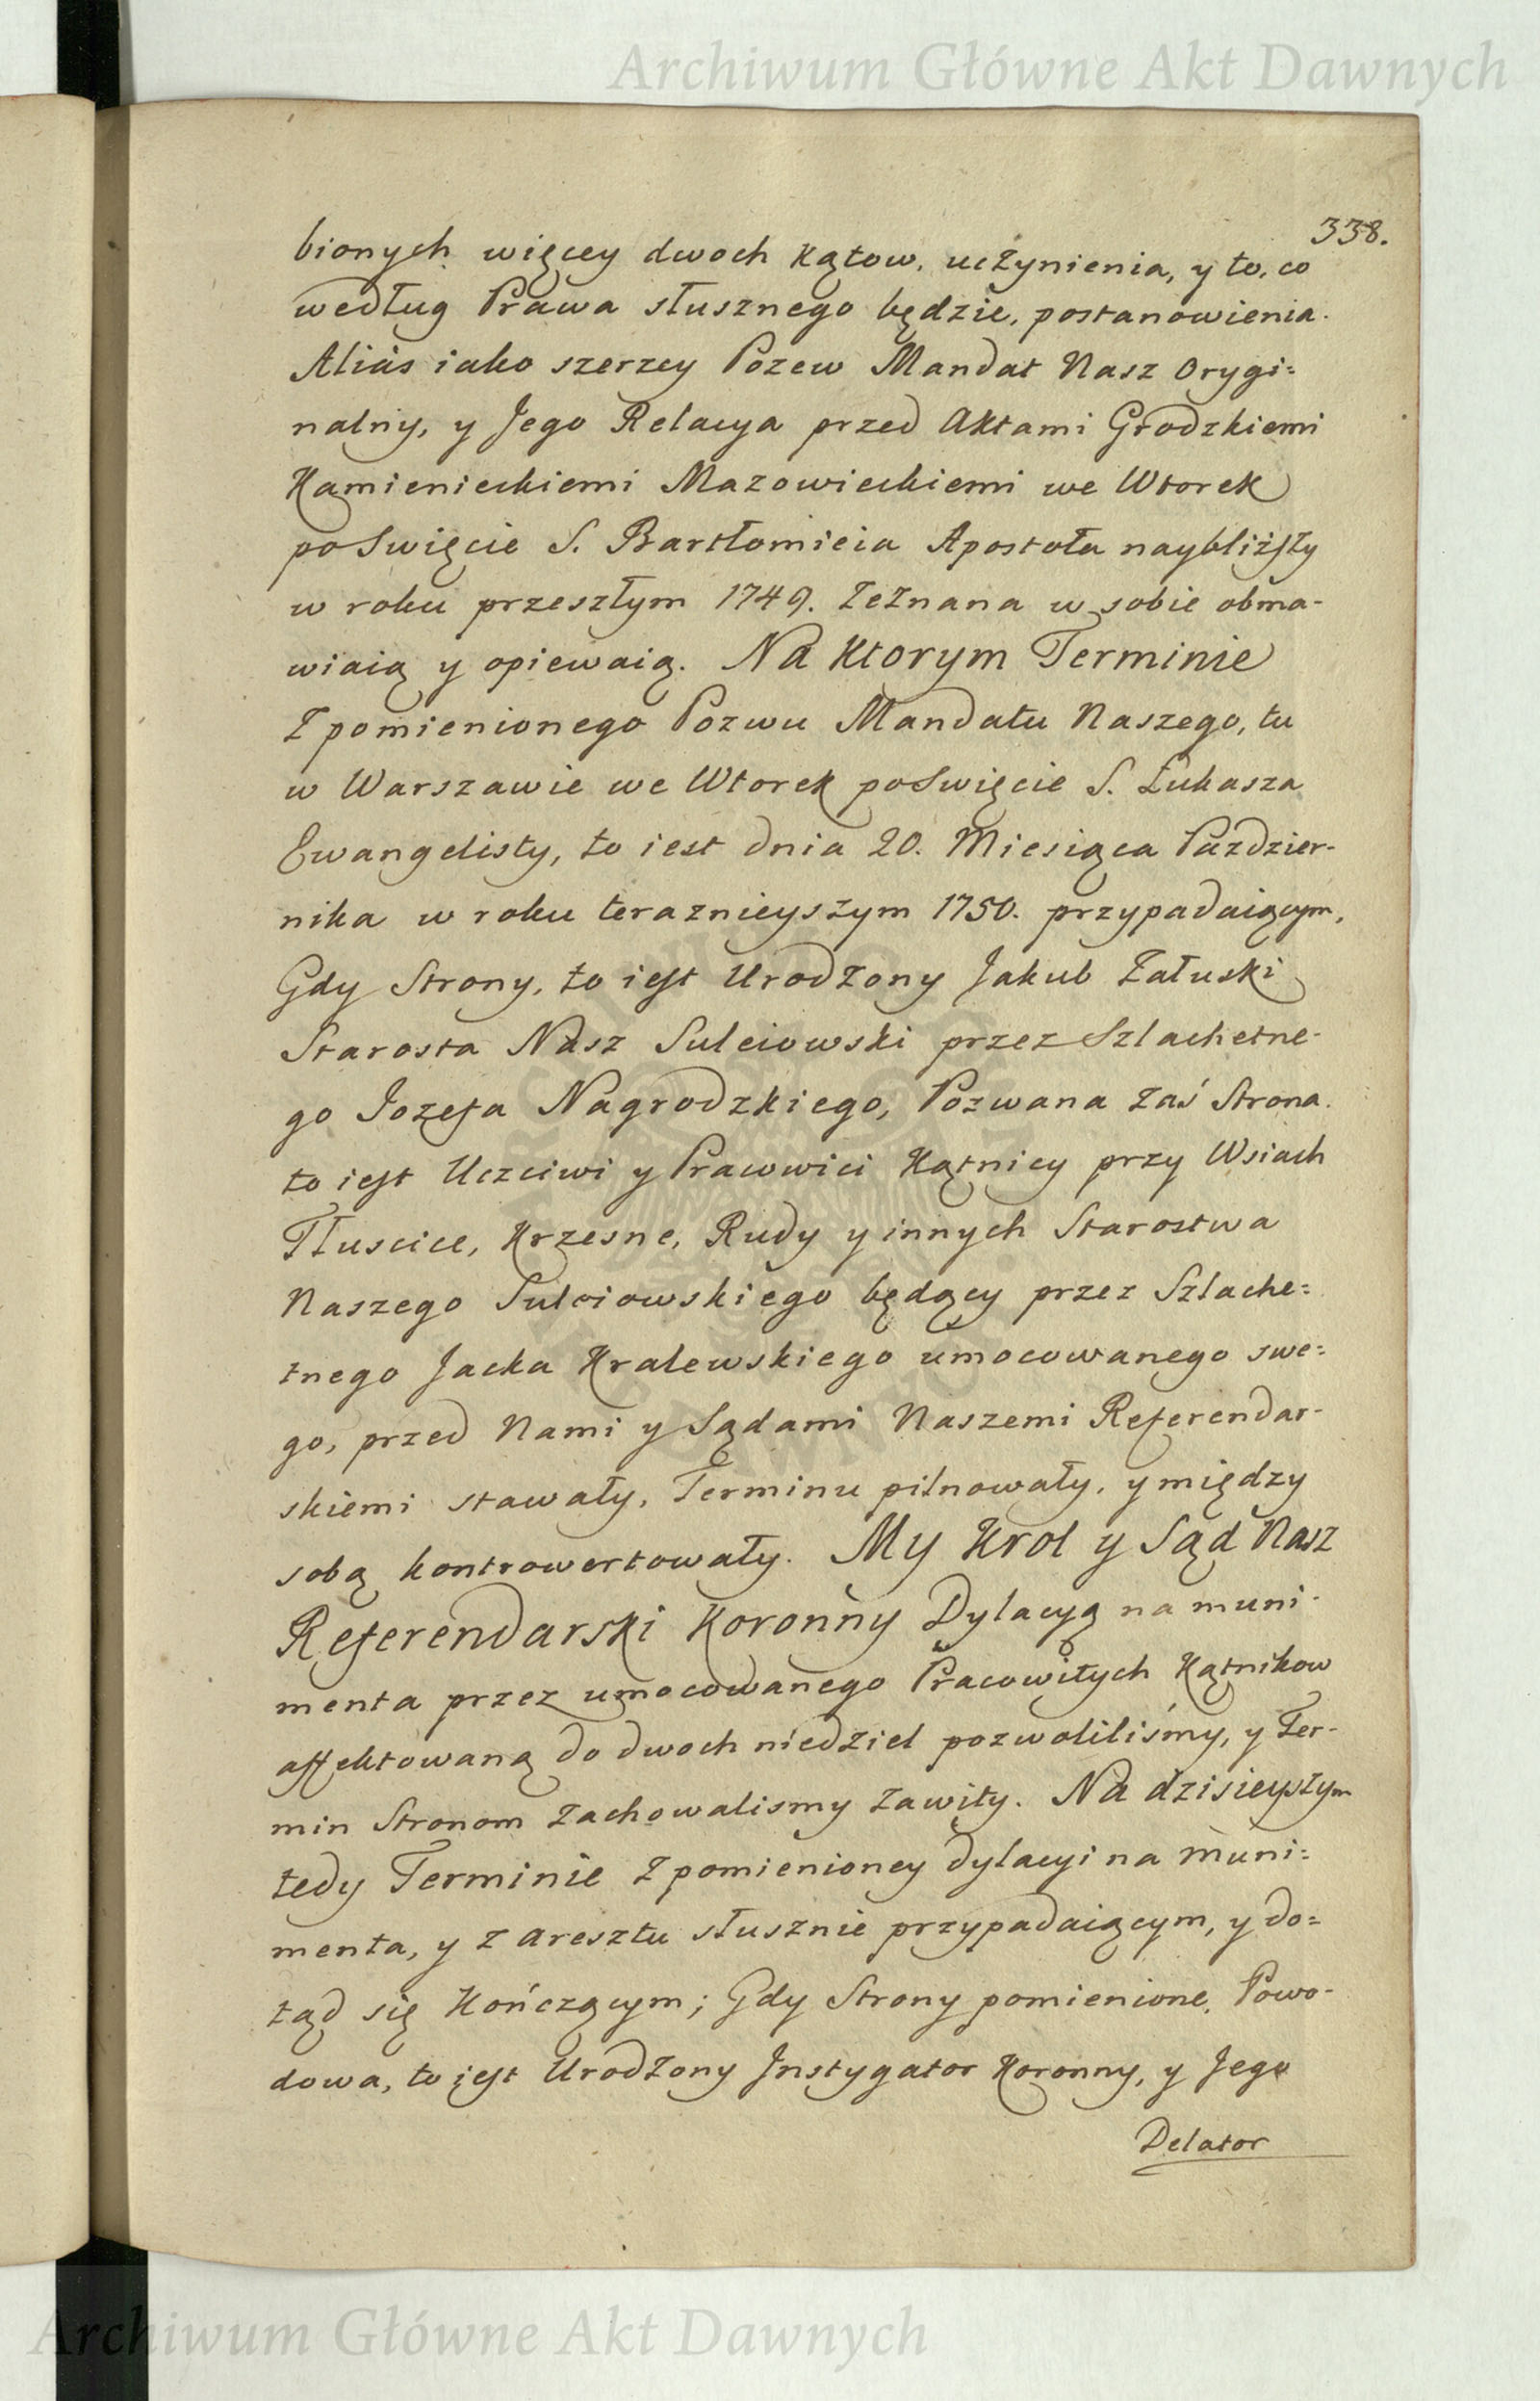 Archiwum Główne Akt Dawnych
338.
bionych więcey dwoch Kątow, uczynienia, y to, co
według Prawa słusznego będzie, postanowienia.
Alias iako szerzey Pozew Mandat Nasz Orygi=
nalny, y Jego Relacya przed Aktami Grodzkiemi
Kamienieckiemi Mazowieckiemi we Wtorek
po Swięcie S. Bartłomieia Apostoła naybliższy
w roku przeszłym 1749. zeznana w sobie obma-
wiaią y opiewaią. Na Ktorym Terminie
z pomienionego Pozwu Mandatu Naszego, tu
w Warszawie we Wtorek po Swięcie S. Łukasza
Ewangelisty, to iest dnia 20. Miesiąca Pazdzier-
nika w roku teraznieyszym 1750. przypadaiącym,
Gdy Strony, to iest Urodzony Jakub Załuski
Starosta Nasz Suleiowski przez Szlachetne-
go Jozefa Nagrodzkiego, Pozwana zaś Strona.
to iest Uczciwi y Pracowici Kątnicy przy Wsiach
Tłuscice, Krzesne, Rudy y innych Starostwa
Naszego Suleiowskiego będący przez Szlache=
tnego Jacka Kralewskiego umocowanego swe=
go, przed Nami y Sądami Naszemi Referendar-
skiemi stawały, Terminu pilnowały, y między
sobą kontrowertowały. My Krol y Sąd Nasz
Referendarski Koronny Dylacyą na muni-
menta przez umocowanego Pracowitych Kątnikow
affektowaną do dwoch niedziel pozwoliliśmy, y Ter-
min Stronom zachowalismy zawity. Na dzisieyszym
tedy Terminie z pomienioney dylacyi na muni=
menta, y z aresztu słusznie przypadaiącym, y do=
tąd się Kończącym; Gdy Strony pomienione, Powo-
dowa, to iest Urodzony Jnstygator Koronny, y Jego
Delator
Archiwum Główne Akt Dawnych